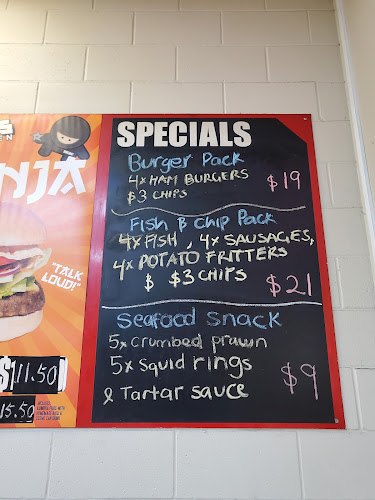 SPECIALS
Burger Pack
4x HAM BURGERS
$3 CHIPS
$19
Fish & Chip Pack
4x FISH, 4x SAUSAGES,
4x POTATO FRITTERS
$ $3 CHIPS
$21
Seafood Snack
5x Crumbed prawn
5x Squid rings
& Tartar sauce
$9
NJA
"TALK
LOUD!"
$11.50
15.50